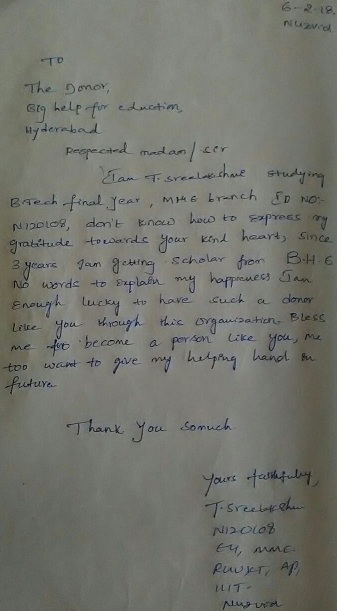 6-2-18,
Nuzvid
TO
The Donor,
Big help for eduction,
Hyderabad
Respected madam/sir
Iam T. Sreelakshmi studying
B.Tech final year, MME branch ID NO:-
N120108, don't know how to express my
gratitude towards your kind heart, since
3 years Iam getting scholar from B.H.E
No words to explain my happiness Iam
Enough lucky to have such a donor
like you through this organization. Bless
me to become a person like you, me
too want to give my helping hand in
future
Thank you somuch
Yours faithfully,
T. Sreelakshmi
N120108
E4, MME.
RGUKT, AP,
IIIT-
Nuzvid